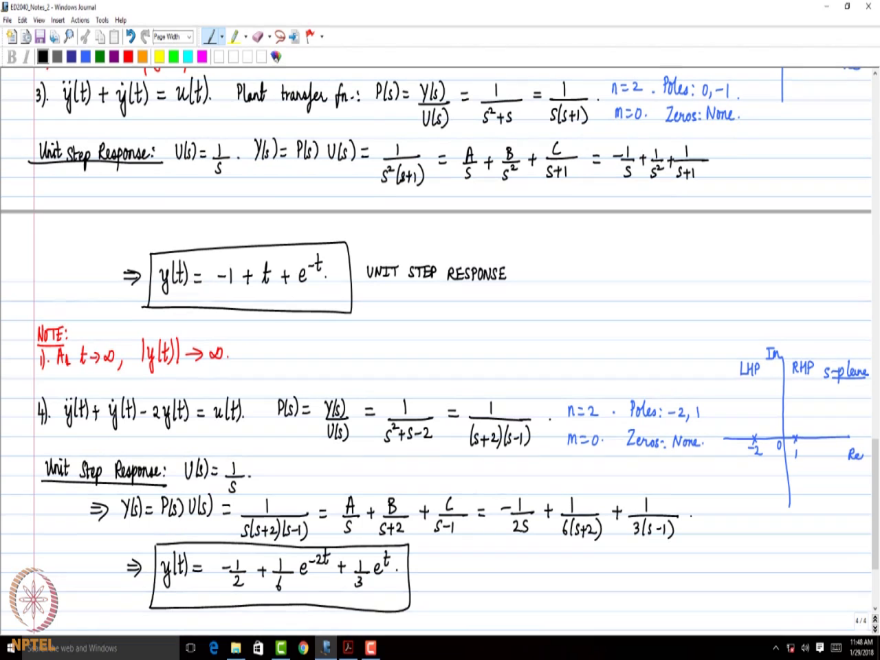 ED2040_Notes_2 - Windows Journal
File Edit View Insert Actions Tools Help
Page Width
B I
3). ÿ(t) + ẏ(t) = u(t). Plant transfer fn.: P(s) = Y(s)/U(s) = 1/(s²+s) = 1/(s(s+1)). n=2. Poles: 0, -1.
m=0. Zeros: None.
Unit Step Response: U(s) = 1/s. Y(s) = P(s) U(s) = 1/(s²(s+1)) = A/s + B/s² + C/(s+1) = -1/s + 1/s² + 1/(s+1)
⇒ y(t) = -1 + t + e^{-t}. UNIT STEP RESPONSE
NOTE:
1). As t→∞, |y(t)| → ∞.
Im
LHP RHP s-plane
4). ÿ(t) + ẏ(t) - 2y(t) = u(t). P(s) = Y(s)/U(s) = 1/(s²+s-2) = 1/((s+2)(s-1)). n=2. Poles: -2, 1
m=0. Zeros: None.
-2 0 1 Re
Unit Step Response: U(s) = 1/s.
⇒ Y(s) = P(s) U(s) = 1/(s(s+2)(s-1)) = A/s + B/(s+2) + C/(s-1) = -1/2s + 1/(6(s+2)) + 1/(3(s-1)).
⇒ y(t) = -1/2 + 1/6 e^{-2t} + 1/3 e^{t}.
4 / 4
NPTEL
the web and Windows
11:48 AM
1/29/2018